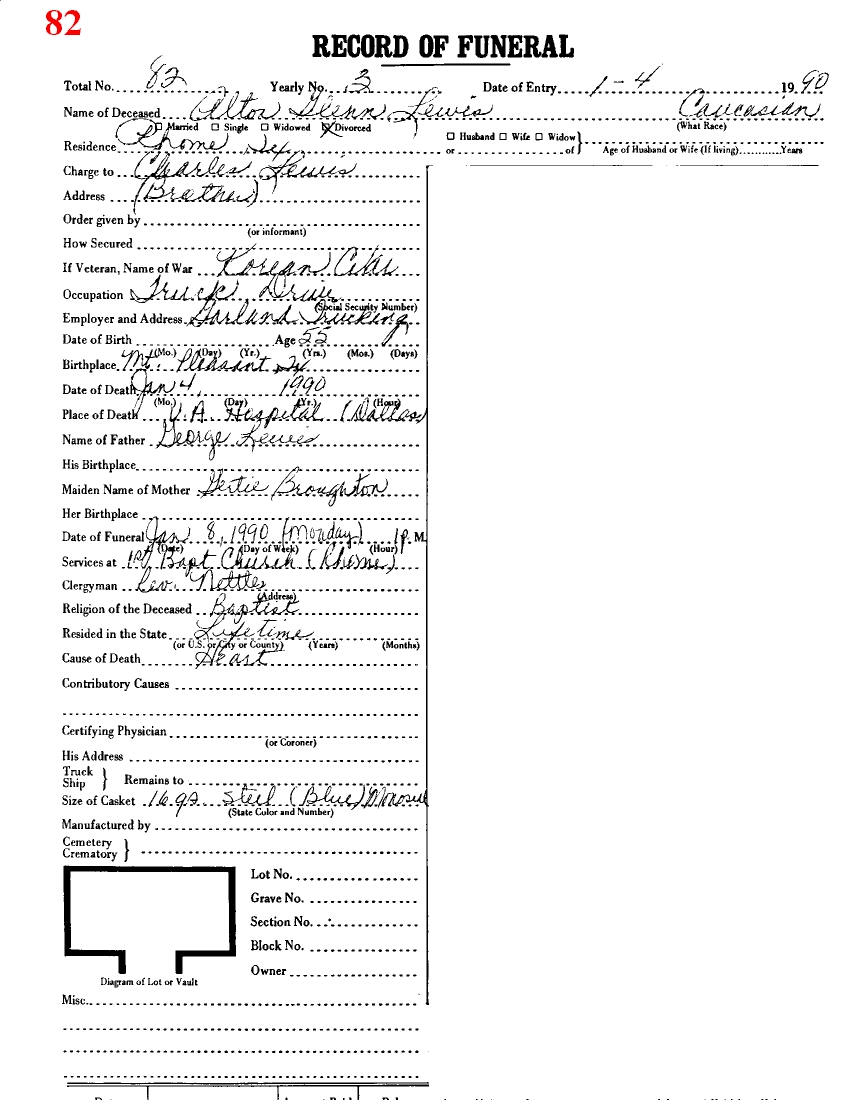 82
RECORD OF FUNERAL
Total No. 82 Yearly No. 3 Date of Entry 1-4 1990
Name of Deceased Alton Glenn Lewis Caucasian
☐ Married ☐ Single ☐ Widowed ☒ Divorced (What Race)
☐ Husband ☐ Wife ☐ Widow }
Residence Rhome Tex. or of } Age of Husband or Wife (If living) Years
Charge to Charles Lewis
Address (Brother)
Order given by
(or informant)
How Secured
If Veteran, Name of War Korean War
Occupation Truck Driver
(Social Security Number)
Employer and Address Garland Trucking
Date of Birth Age 55
(Mo.) (Day) (Yr.) (Yrs.) (Mos.) (Days)
Birthplace Mt. Pleasant Tx
Date of Death Jan 4, 1990
(Mo.) (Day) (Yr.) (Hour)
Place of Death V.A. Hospital (Dallas)
Name of Father George Lewis
His Birthplace
Maiden Name of Mother Gertie Broughton
Her Birthplace
Date of Funeral Jan 8, 1990 (Monday) 1 P. M.
(Date) (Day of Week) (Hour)
Services at 1st Bapt Church (Rhome)
Clergyman Rev. Nettles
(Address)
Religion of the Deceased Baptist
Resided in the State Lifetime
(or U.S. or City or County) (Years) (Months)
Cause of Death Heart
Contributory Causes
Certifying Physician
(or Coroner)
His Address
Truck
Ship } Remains to
Size of Casket 16 ga Steel (Blue)
(State Color and Number)
Manufactured by
Cemetery
Crematory }
Lot No.
Grave No.
Section No.
Block No.
Owner
Diagram of Lot or Vault
Misc.